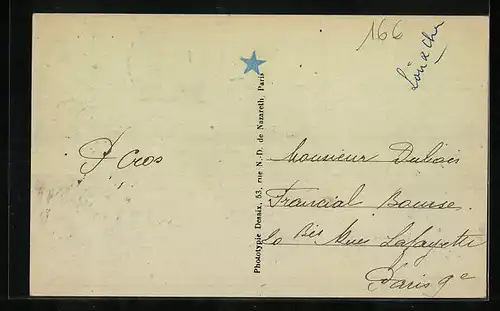 166
Loir & Cher
P. Cros
Phototypie Desaix, 53, rue N.-D. de Nazareth, Paris
Monsieur Dubois
Francial Bourse
Bis Rue Lafayette
Paris 9e